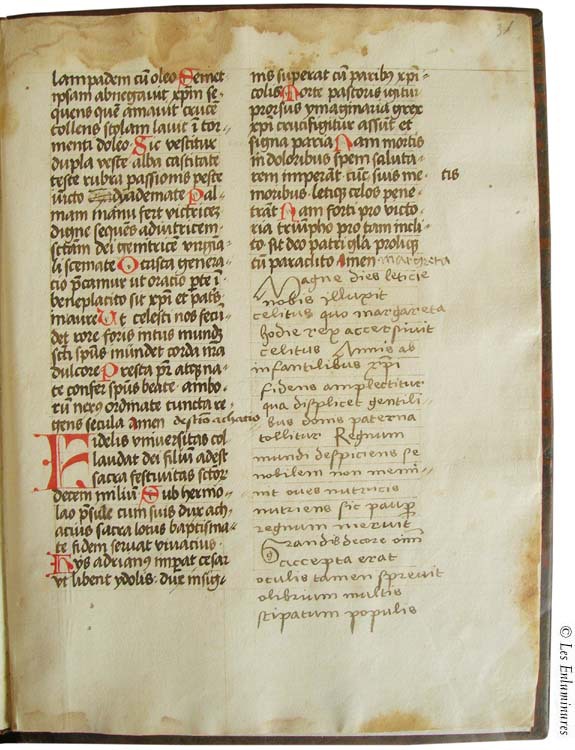 31
lampadem cū oleo Semet
ipsam abnegavit xpm se-
quens quē amavit crucē
tollens stolam lavit ī tor
menti doleo Sic vestitur
dupla veste alba castitate
teste rubra passionis peste
victo dyademate Pal-
mam manu fert victricez
digne sequēs adiutricem
sctām dei genitricem virginā
li scemate O casta genera
cio pcamur ut oratio perte ī
beneplacito sit xpī et patris
mature Ut celesti nos secū
det rore foris intus mund
sctī spūs mundet corda ma
dulcore Presta pr atqz na-
te confer spūs beate ambo
rū nexus ordinate cuncta re
gens secula Amen de sctō achacio
Fidelis universitas col
laudat dei filiū adest
sacra festivitas sctor
decem miliū Sub hermo-
lao psule cum suis dux ach-
acius sacra lotus baptisma-
te fidem servat vivacius
Hys adrianus imperat cesar
ut libent ydolis due insig-
nis superat cū paribus xpī
colis Morte pastoris igitur
prorsus ymaginaria grex
xpī crucifigitur assunt et
signa paria Nam mortis
in doloribus spem saluta-
rem imperāt cūc suis me-tis
moribus letiqz celos pene
trāt Nam forti pro victo-
ria triūpho pro tam incli-
to sit deo patri gla proliqz
cū paraclito Amen margreta
Magne dies leticie
nobis illuxit
celitus quo margareta
hodie rex accersivit
celitus Annis ab
infantilibus xpī
fidens amplectitur
qua displicet gentili-
bus domo paterna
tollitur Regnum
mundi despiciens se
nobilem non memi-
nit oves nutricis
nutriens sic paup
regnum meruit
Grandis decore omi
accepta erat
oculis tamen sprevit
olibrium multis
stipatum populis
© Les Enluminures